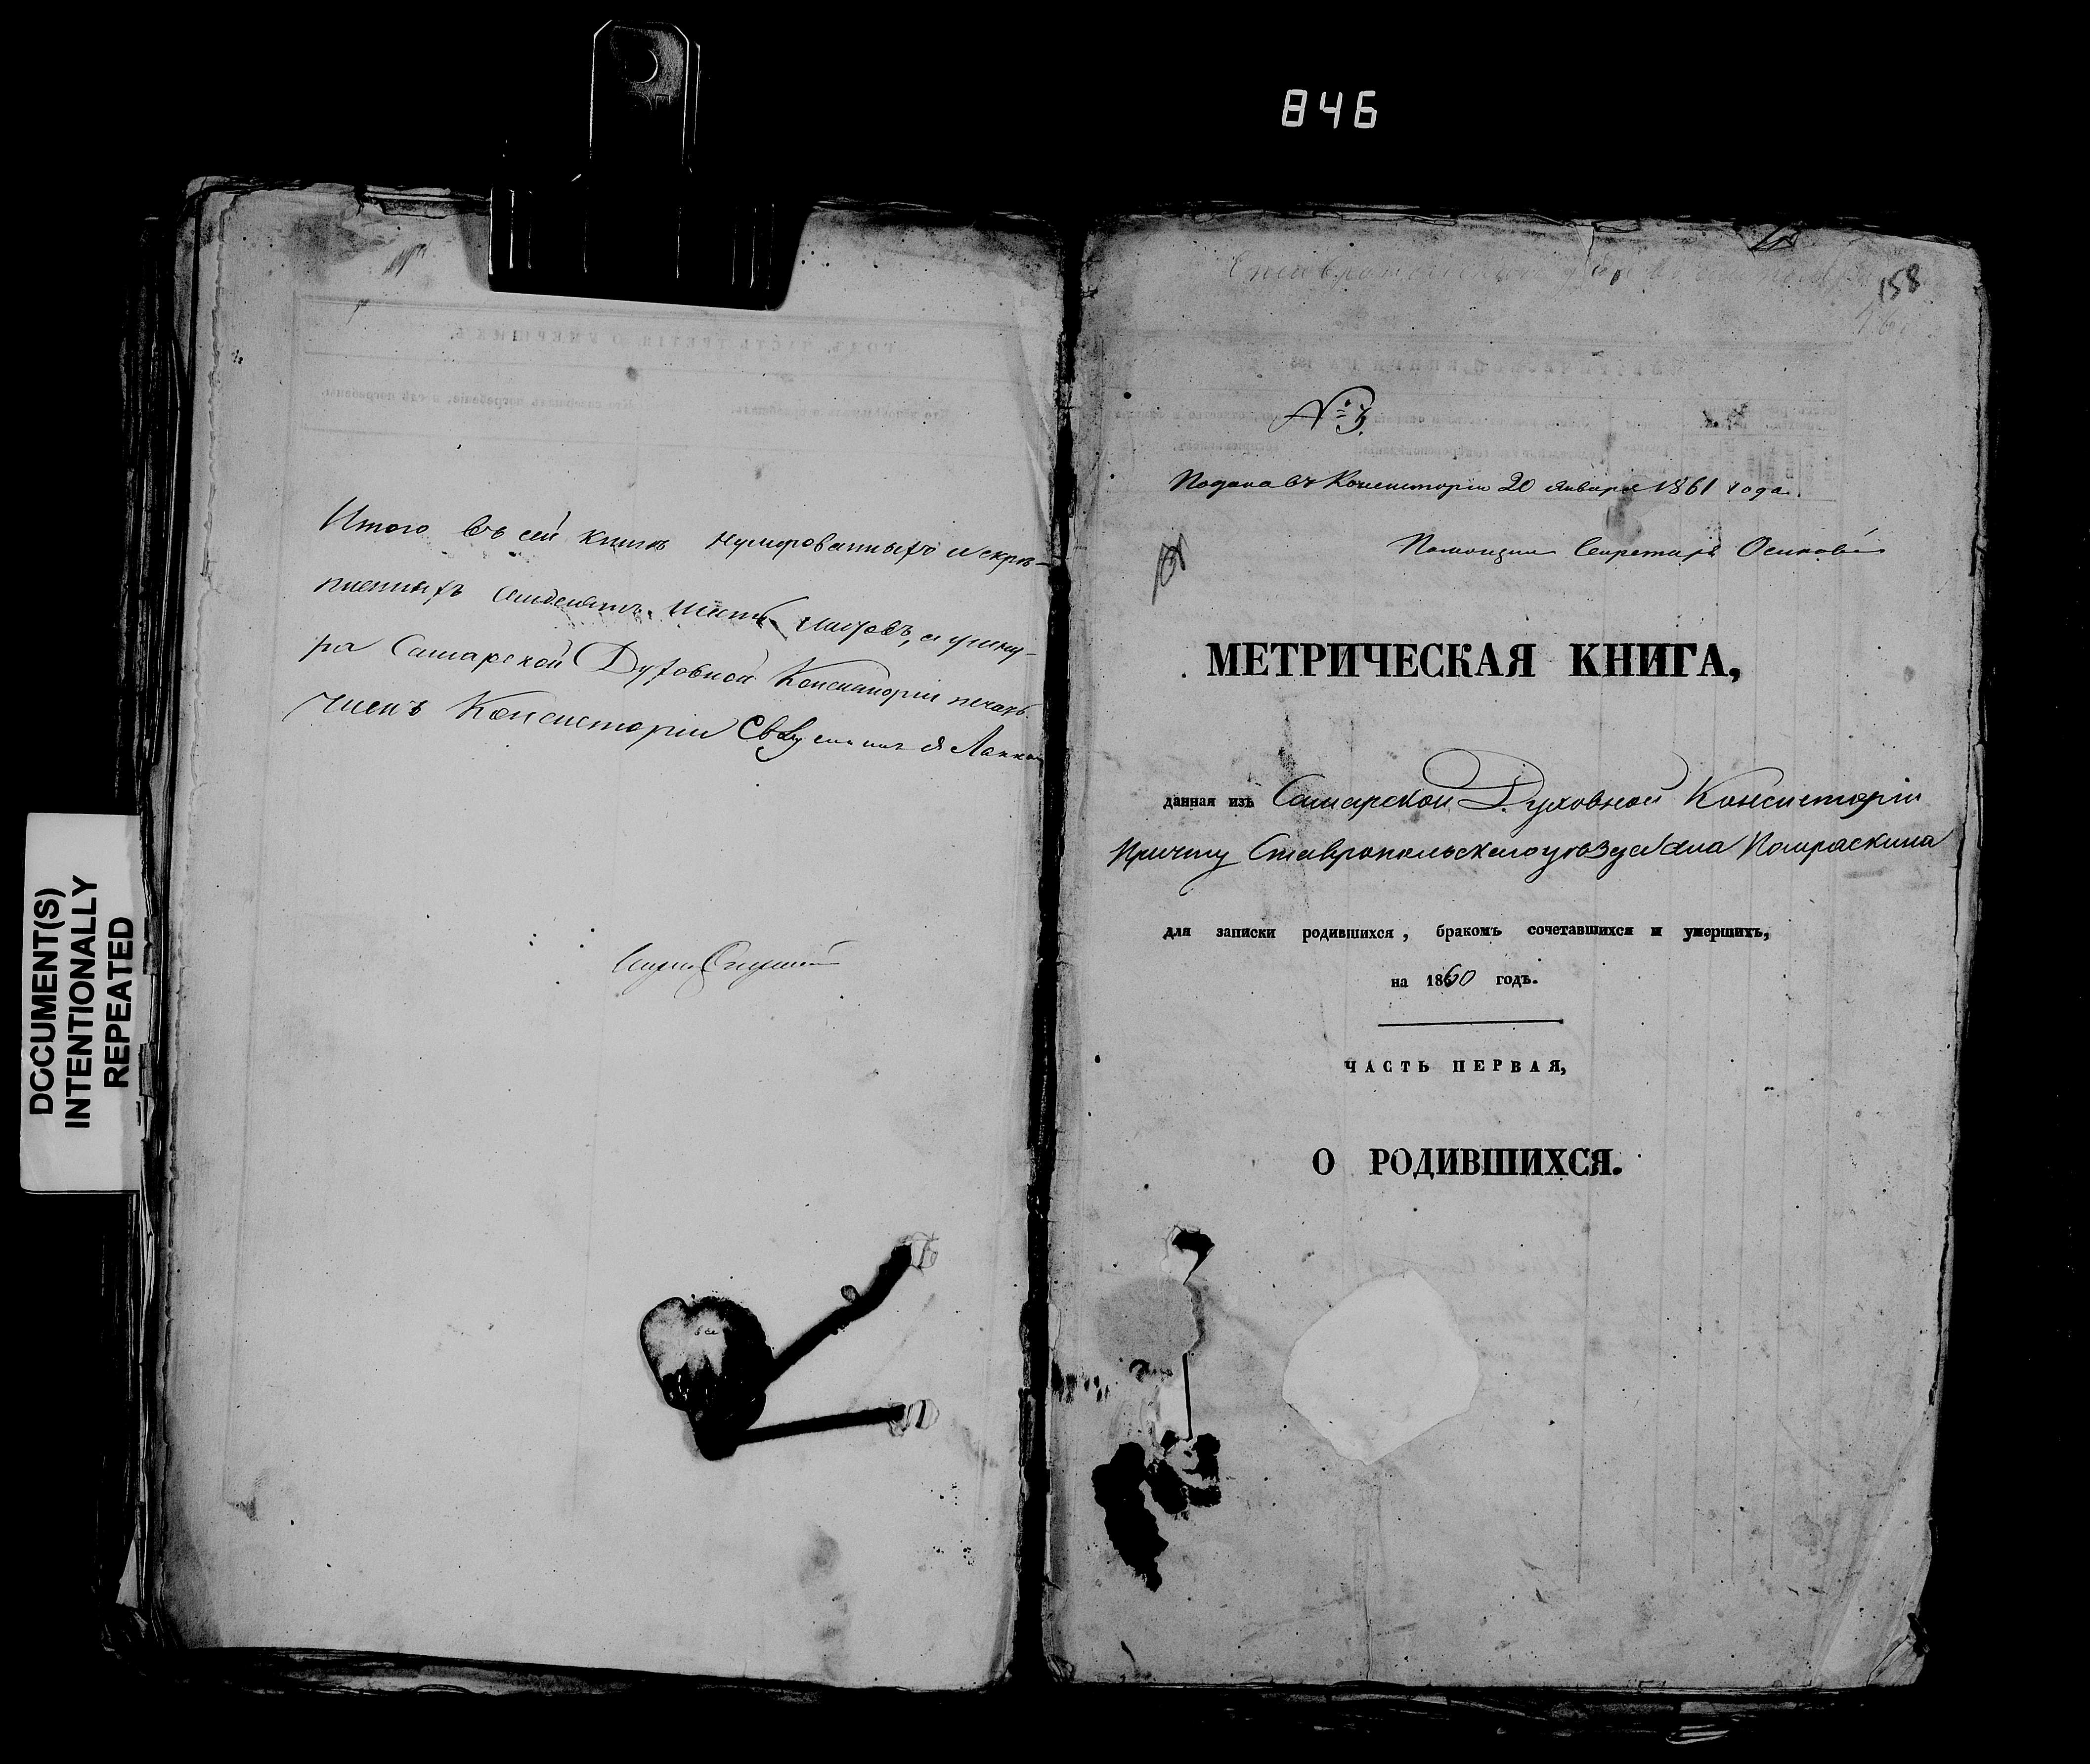 846
DOCUMENT(S)
INTENTIONALLY
REPEATED
Итого въ сей книгѣ нумерованныхъ и скрѣ-
пленныхъ шесть листовъ, и у шну-
ра Самарской Духовной Консисторіи печать.
Членъ Консисторіи
158
№ 3.
Подана въ Консисторію 20 января 1861 года.
Помощник Секретаря Осиповъ
МЕТРИЧЕСКАЯ КНИГА,
данная изъ Самарской Духовной Консисторіи
Причту Ставропольскаго уѣзда села Помряскина
для записки родившихся, бракомъ сочетавшихся и умершихъ,
на 1860 годъ.
ЧАСТЬ ПЕРВАЯ,
О РОДИВШИХСЯ.